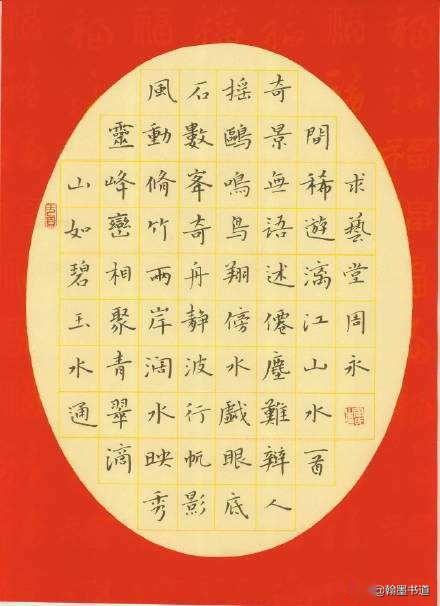 山如碧玉水通
靈峰巒相聚青翠滴
風動脩竹兩岸闊水映秀
石數峯奇舟静波行帆影
摇鷗鳴鸟翔傍水戲眼底
奇景無語述僊塵難辨人
間稀遊漓江山水一首
求藝堂周永
@翰墨书道